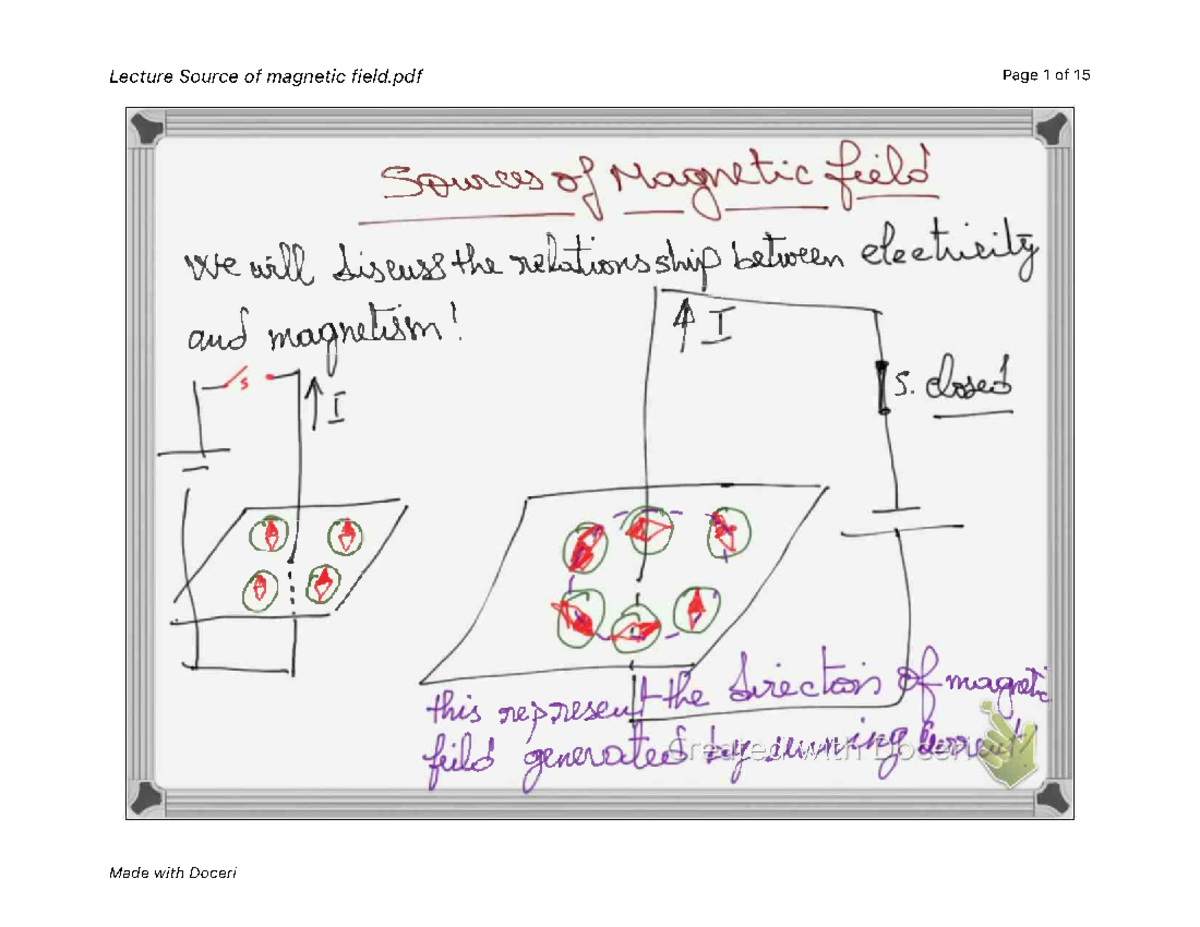 Lecture Source of magnetic field.pdf
Page 1 of 15
Sources of Magnetic field
We will discuss the relationsship between electricity
and magnetism!
S
I
I
S. closed
this represent the direction of magnetic
feild generated by running current
Created with Doceri
Made with Doceri